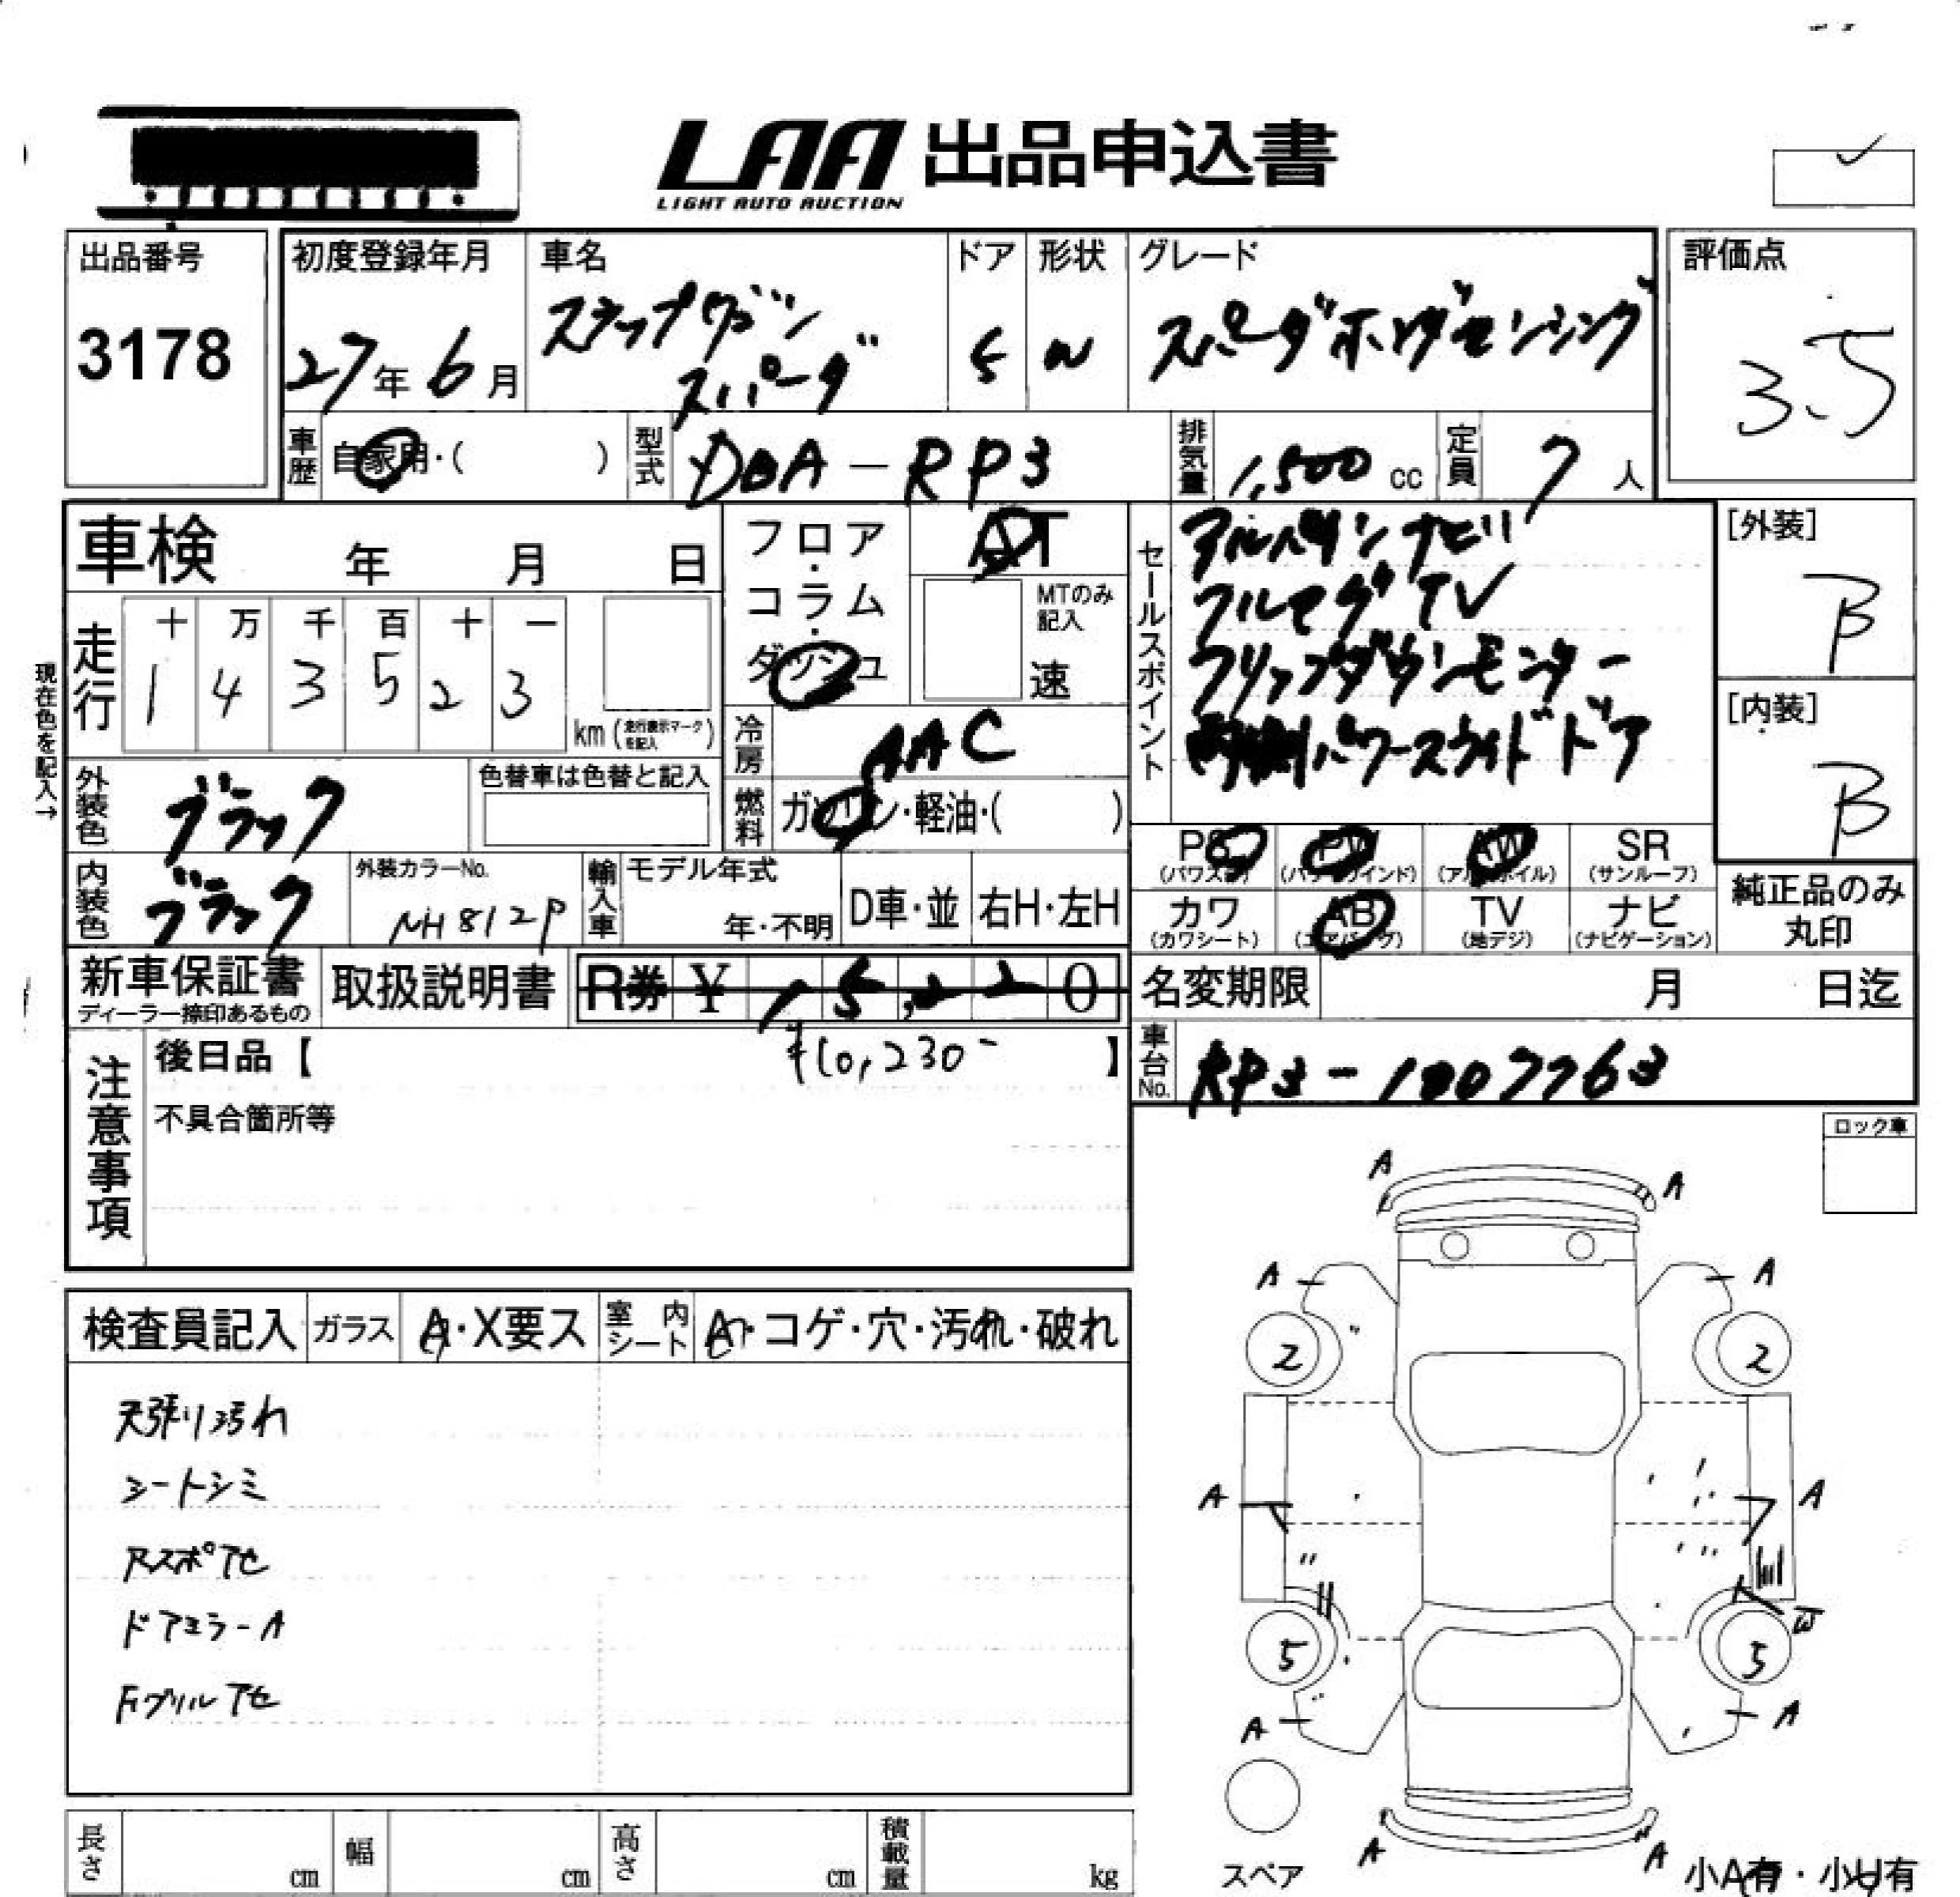 LAA 出品申込書
LIGHT AUTO AUCTION
出品番号
3178
初度登録年月
27年 6月
車名
ステップワゴン
スパーダ
ドア
5
形状
W
グレード
スパーダホンダセンシング
評価点
3.5
車歴 自家用・( )
型式 DBA-RP3
排気量 1,500 cc
定員 7 人
車検 年 月 日
フロア・コラム・ダッシュ
AT
MTのみ記入
速
走行
十 万 千 百 十 一
1 4 3 5 2 3
km (走行表示マークを記入)
現在色を記入→
冷房 AAC
燃料 ガソリン・軽油・( )
外装色 ブラック
色替車は色替と記入
内装色 ブラック
外装カラーNo.
NH812P
輸入車
モデル年式
年・不明
D車・並
右H・左H
セールスポイント
アルパインナビ
フルセグTV
フリップダウンモニター
両側パワースライドドア
[外装]
B
[内装]
B
PS (パワステ)
PW (パワーウインド)
AW (アルミホイル)
SR (サンルーフ)
カワ (カワシート)
AB (エアバッグ)
TV (地デジ)
ナビ (ナビゲーション)
純正品のみ
丸印
新車保証書
ディーラー捺印あるもの
取扱説明書
R券 ¥ 15,220
¥10,230-
名変期限 月 日迄
車台No. RP3-1007763
注意事項
後日品【 】
不具合箇所等
ロック車
検査員記入
ガラス A・X要ス
室内シート A・コゲ・穴・汚れ・破れ
天張り汚れ
シートシミ
RスポアA
ドアミラーA
Fグリルアセ
A A
A A
2 2
A A
5 5
W
A A
A A
スペア
小A有・小U有
長さ cm
幅 cm
高さ cm
積載量 kg